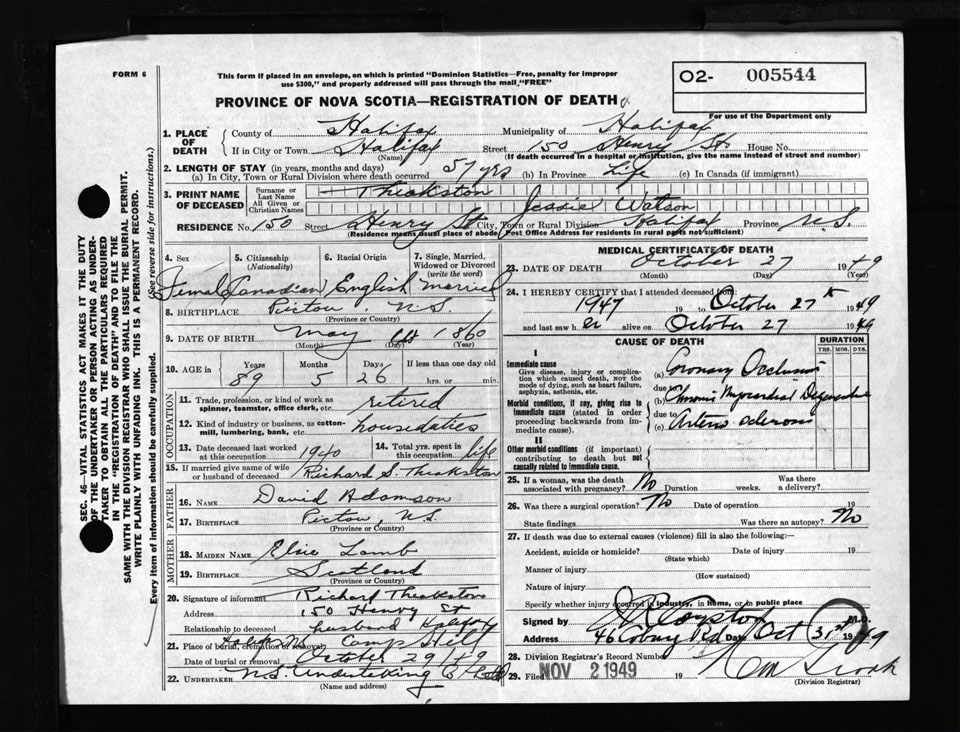 FORM 6
This form if placed in an envelope, on which is printed "Dominion Statistics—Free, penalty for improper
use $300," and properly addressed will pass through the mail "FREE"
O2- 005544
For use of the Department only
PROVINCE OF NOVA SCOTIA—REGISTRATION OF DEATH
1. PLACE OF DEATH County of Halifax Municipality of Halifax
If in City or Town Halifax (Name) Street 150 Henry St House No.
(If death occurred in a hospital or institution, give the name instead of street and number)
2. LENGTH OF STAY (in years, months and days)
(a) In City, Town or Rural Division where death occurred 57 yrs (b) In Province Life (c) In Canada (if immigrant)
3. PRINT NAME OF DECEASED Surname or Last Name Theakston
All Given or Christian Names Jessie Watson
RESIDENCE No. 150 Street Henry St City, Town or Rural Division Halifax Province N.S.
(Residence means usual place of abode. Post Office Address for residents in rural parts not sufficient)
4. Sex 5. Citizenship (Nationality) 6. Racial Origin 7. Single, Married, Widowed or Divorced (write the word)
Female Canadian English Married
8. BIRTHPLACE Pictou, N.S.
(Province or Country)
9. DATE OF BIRTH May 1st 1860
(Month) (Day) (Year)
10. AGE in Years Months Days If less than one day old
89 5 26 hrs. or min.
OCCUPATION
11. Trade, profession, or kind of work as spinner, teamster, office clerk, etc. retired
12. Kind of industry or business, as cotton-mill, lumbering, bank, etc. houseduties
13. Date deceased last worked at this occupation 1940 14. Total yrs. spent in this occupation life
15. If married give name of wife or husband of deceased Richard S. Theakston
FATHER
16. NAME David Adamson
17. BIRTHPLACE Pictou, N.S.
(Province or Country)
MOTHER
18. MAIDEN NAME Elsie Lamb
19. BIRTHPLACE Scotland
(Province or Country)
20. Signature of informant Richard Theakston
Address 150 Henry St Halifax
Relationship to deceased husband
21. Place of burial, cremation or removal Camp Hill
Date of burial or removal October 29/49
22. UNDERTAKER N.S. Undertaking Co Ltd
(Name and address)
MEDICAL CERTIFICATE OF DEATH
23. DATE OF DEATH October 27 1949
(Month) (Day) (Year)
24. I HEREBY CERTIFY that I attended deceased from
1947 19 to October 27th 1949
and last saw her alive on October 27 1949
CAUSE OF DEATH DURATION
YRS. MOS. DYS.
I
Immediate cause
Give disease, injury or complication which caused death, not the mode of dying, such as heart failure, asphyxia, asthenia, etc.
(a) Coronary Occlusion
due to
Morbid conditions, if any, giving rise to immediate cause (stated in order proceeding backwards from immediate cause).
(b) Chronic Myocardial Degeneration
due to
(c) Arterio sclerosis
II
Other morbid conditions (if important) contributing to death but not causally related to immediate cause.
25. If a woman, was the death associated with pregnancy? No Duration weeks. Was there a delivery?
26. Was there a surgical operation? No Date of operation 19
State findings Was there an autopsy? No
27. If death was due to external causes (violence) fill in also the following:—
Accident, suicide or homicide? Date of injury 19
(State which)
Manner of injury
(How sustained)
Nature of injury
Specify whether injury occurred in industry, in home, or in public place
Signed by M.D.
Address Date Oct 31st 1949
28. Division Registrar's Record Number
29. Filed NOV 2 1949 19
(Division Registrar)
SEC. 46—VITAL STATISTICS ACT MAKES IT THE DUTY
OF THE UNDERTAKER OR PERSON ACTING AS UNDER-
TAKER TO OBTAIN ALL THE PARTICULARS REQUIRED
IN THE "REGISTRATION OF DEATH" AND TO FILE THE
SAME WITH THE DIVISION REGISTRAR WHO SHALL ISSUE THE BURIAL PERMIT.
WRITE PLAINLY WITH UNFADING INK. THIS IS A PERMANENT RECORD.
Every item of information should be carefully supplied. (See reverse side for instructions.)